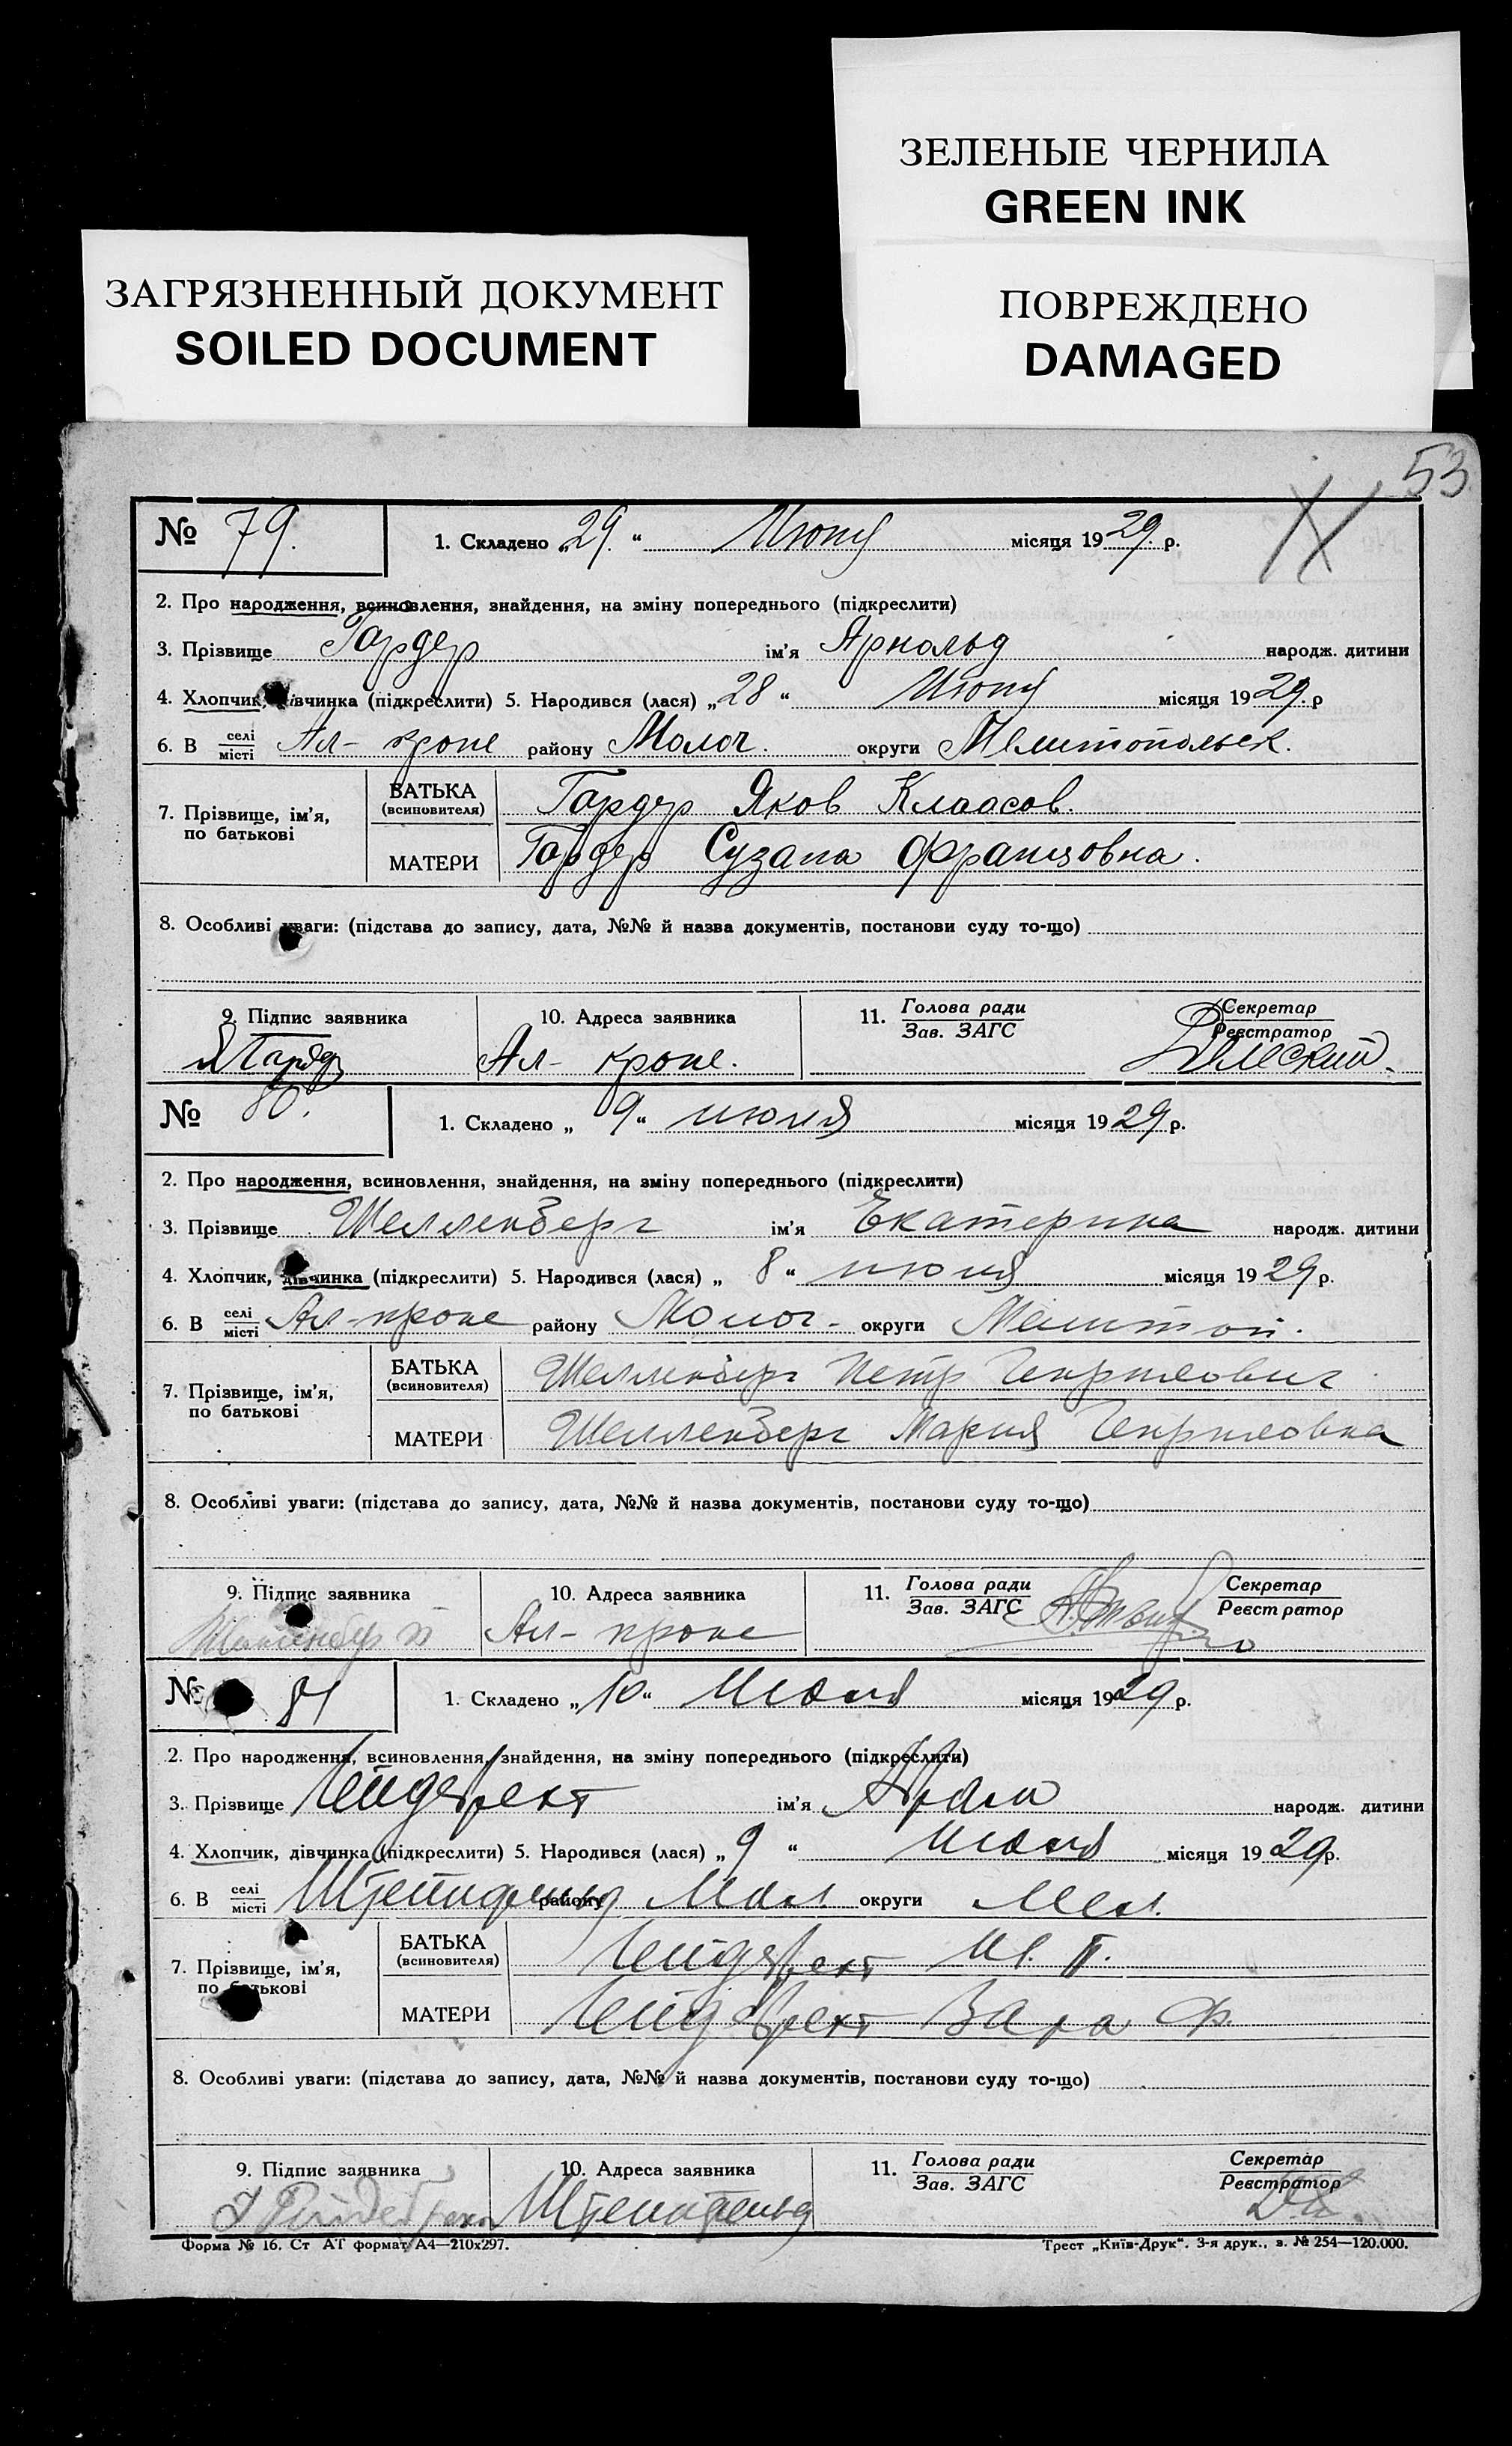 ЗЕЛЕНЫЕ ЧЕРНИЛА
GREEN INK
ЗАГРЯЗНЕННЫЙ ДОКУМЕНТ
SOILED DOCUMENT
ПОВРЕЖДЕНО
DAMAGED
53
№ 79. 1. Складено „29.“ Июня місяця 1929. р.
2. Про народження, всиновлення, знайдення, на зміну попереднього (підкреслити)
3. Прізвище Гардер ім'я Арнольд народж. дитини
4. Хлопчик, дівчинка (підкреслити) 5. Народився (лася) „28“ Июня місяця 1929. р
6. В селі місті Ал-кроне району Молоч. округи Мелитопольск.
7. Прізвище, ім'я, по батькові
БАТЬКА (всиновителя) Гардер Яков Клаасов.
МАТЕРИ Гардер Сузана Францовна.
8. Особливі уваги: (підстава до запису, дата, №№ й назва документів, постанови суду то-що)
9. Підпис заявника 10. Адреса заявника 11. Голова ради Зав. ЗАГС Секретар Реєстратор
Я Гардер Ал-кроне.
№ 80. 1. Складено „9“ июля місяця 1929 р.
2. Про народження, всиновлення, знайдення, на зміну попереднього (підкреслити)
3. Прізвище Шелленберг ім'я Екатерина народж. дитини
4. Хлопчик, дівчинка (підкреслити) 5. Народився (лася) „8“ июля місяця 1929 р.
6. В селі місті Ал-кроне району Молоч- округи Мелитоп.
7. Прізвище, ім'я, по батькові
БАТЬКА (всиновителя) Шелленберг Петр Генрихович
МАТЕРИ Шелленберг Мария Генриховна
8. Особливі уваги: (підстава до запису, дата, №№ й назва документів, постанови суду то-що)
9. Підпис заявника 10. Адреса заявника 11. Голова ради Зав. ЗАГС Секретар Реєстратор
Ал-кроне
№ 81 1. Складено „10“ Июля місяця 1929 р.
2. Про народження, всиновлення, знайдення, на зміну попереднього (підкреслити)
3. Прізвище Гейдебрехт ім'я Абрам народж. дитини
4. Хлопчик, дівчинка (підкреслити) 5. Народився (лася) „9“ Июля місяця 1929р.
6. В селі місті Штейнфельд району Мол. округи Мел.
7. Прізвище, ім'я, по батькові
БАТЬКА (всиновителя) Гейдебрехт И. П.
МАТЕРИ Гейдебрехт Зара Ф.
8. Особливі уваги: (підстава до запису, дата, №№ й назва документів, постанови суду то-що)
9. Підпис заявника 10. Адреса заявника 11. Голова ради Зав. ЗАГС Секретар Реєстратор
Штейнфельд
Форма № 16. Ст АТ формат А4—210x297. Трест „Київ-Друк“. 3-я друк., з. № 254—120.000.